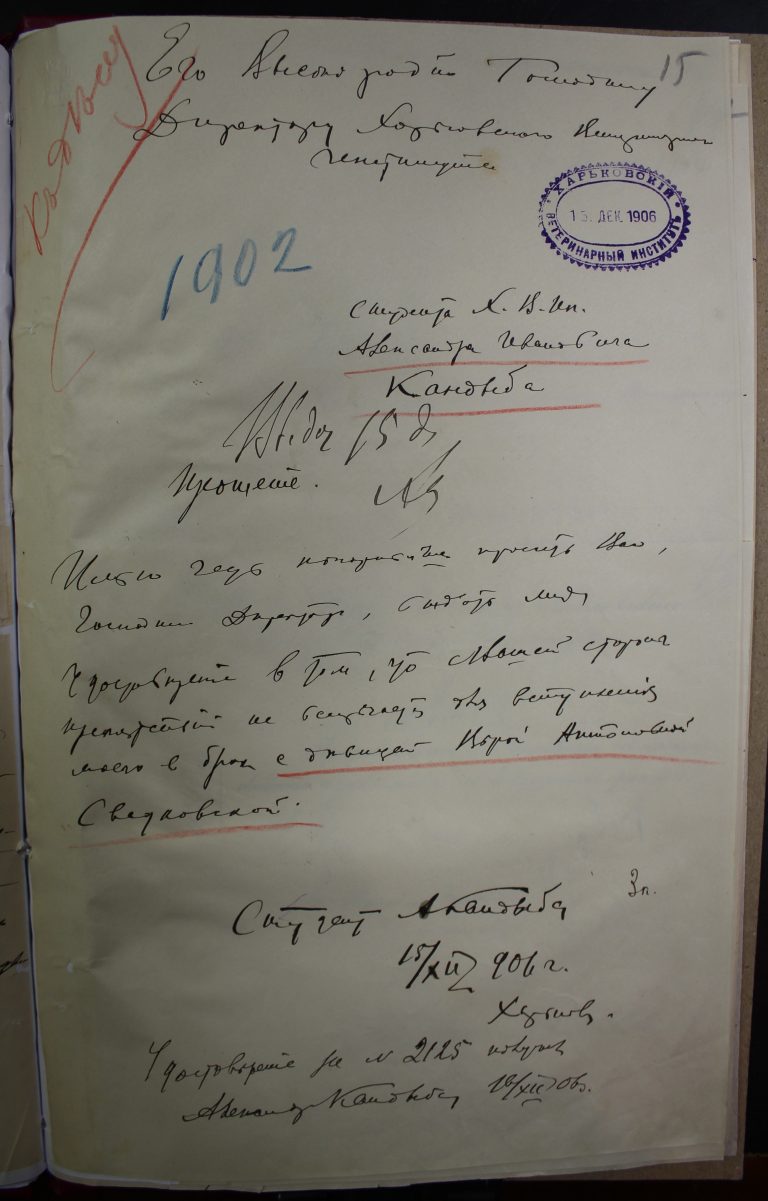 15
Его Высокородію Господину
Директору Харьковского Ветеринарнаго
Института
Къ дѣлу
ХАРЬКОВСКІЙ
15. ДЕК. 1906
ВЕТЕРИНАРНЫЙ ИНСТИТУТЪ
1902
студента Х. В. Ин.
Александра Ивановича
Кандыба
15 д
Прошеніе.
Имѣю честь покорнѣйше просить Вас,
Господин Директор, выдать мнѣ
Удостовѣреніе в том, что с Вашей стороны
препятствій не встрѣчается для вступленія
моего в брак с дѣвицей Вѣрой Антоновной
Свидловской.
Зп.
Студент А Кандыба
15/XII 906 г.
Харьков.
Удостовѣреніе за № 2125 получил
Александр Кандыба 16/XII 06 г.